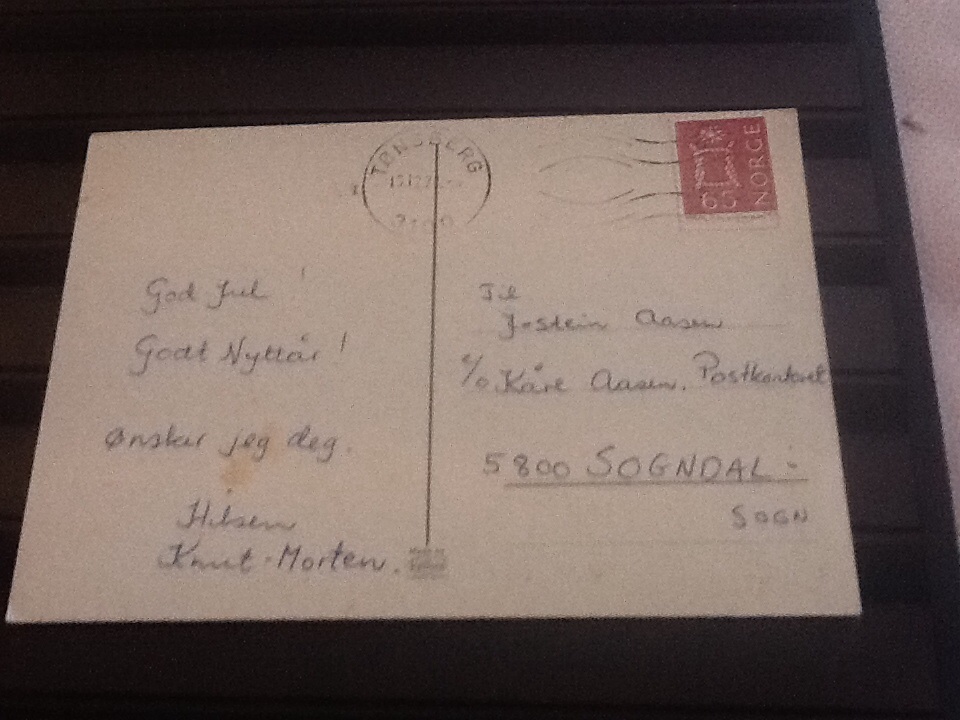 TØNSBERG
65 NORGE
God Jul !
Godt Nyttår !
Ønsker jeg deg.
Hilsen
Knut-Morten.
Til
Jostein Aasen
c/o Kåre Aasen. Postkontoret
5800 SOGNDAL :-
SOGN